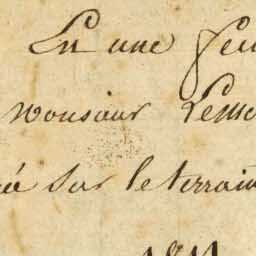 En une feu
monsieur Lemo
é sur le terrain